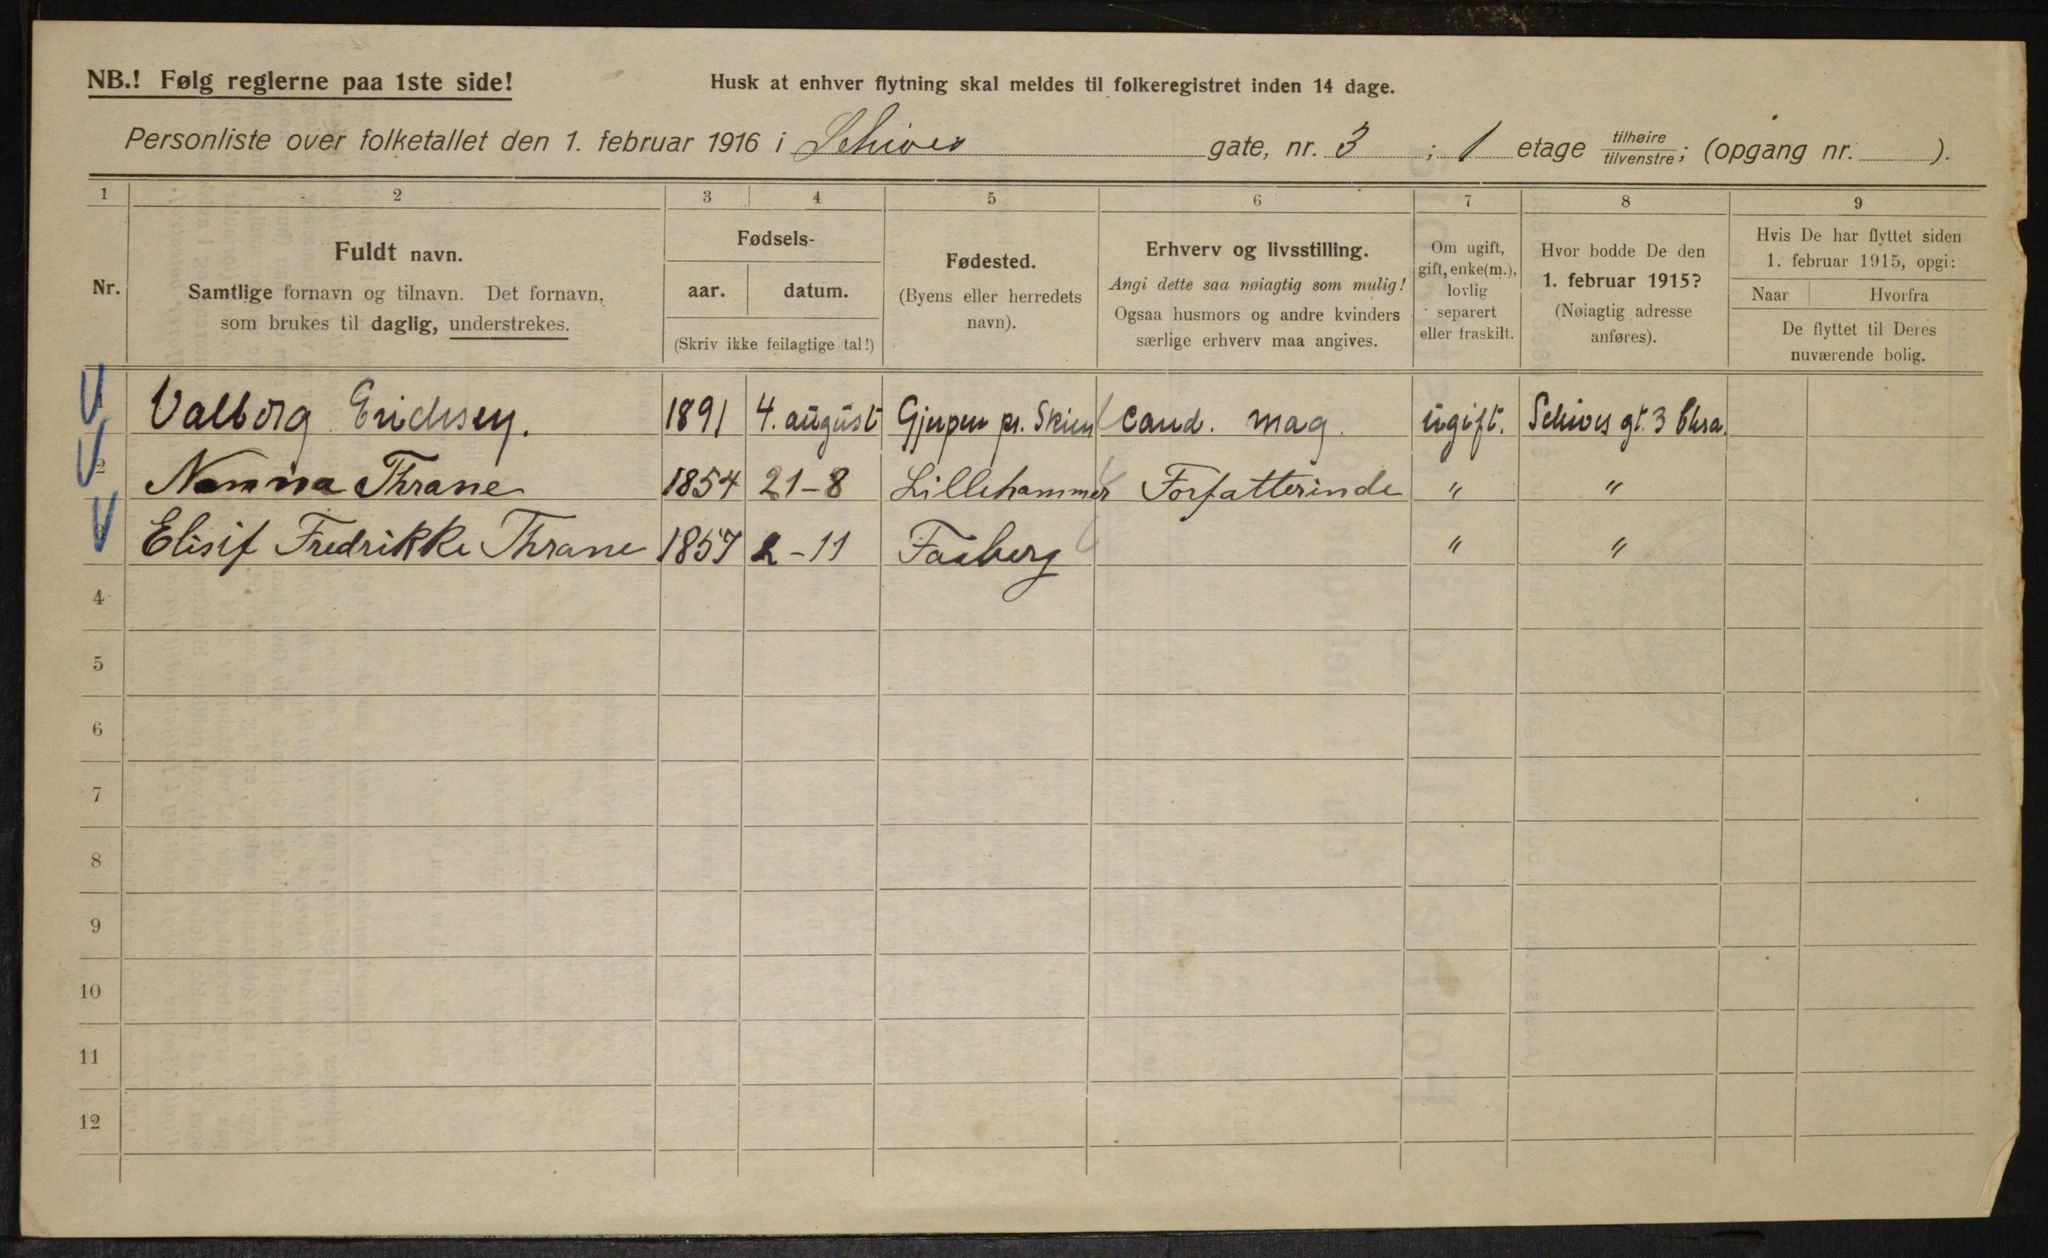 NB.! Følg reglerne paa 1ste side!
Husk at enhver flytning skal meldes til folkeregistret inden 14 dage.
Personliste over folketallet den 1. februar 1916 i Schives gate, nr. 3 ; 1 etage tilhøire/tilvenstre; (opgang nr. ).
1 2 3 4 5 6 7 8 9
Nr.
Fuldt navn.
Samtlige fornavn og tilnavn. Det fornavn,
som brukes til daglig, understrekes.
Fødsels-
aar. datum.
(Skriv ikke feilagtige tal!)
Fødested.
(Byens eller herredets
navn).
Erhverv og livsstilling.
Angi dette saa nøiagtig som mulig!
Ogsaa husmors og andre kvinders
særlige erhverv maa angives.
Om ugift,
gift, enke(m.),
lovlig
separert
eller fraskilt.
Hvor bodde De den
1. februar 1915?
(Nøiagtig adresse
anføres).
Hvis De har flyttet siden
1. februar 1915, opgi:
Naar Hvorfra
De flyttet til Deres
nuværende bolig.
1 Valborg Erichsen. 1891 4. august Gjerpen pr. Skien Cand. mag. ugift. Schives gt. 3 Chra.
2 Nanna Thrane 1854 21-8 Lillehammer Forfatterinde " "
3 Elisif Fredrikke Thrane 1857 2-11 Faaberg " "
4
5
6
7
8
9
10
11
12